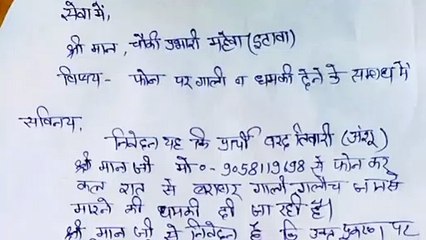 सेवा में,
श्री मान, चौकी प्रभारी महेवा (इटावा)
विषय - फोन पर गाली व धमकी देने के सम्बन्ध में
सविनय,
निवेदन यह कि प्रार्थी वरद तिवारी (अंशू)
श्री मान जी मो०- 9058119698 से फोन कर
कल रात से बराबर गाली गलौच व
मारने की धमकी दी जा रही है।
श्री मान जी से निवेदन है कि उक्त प्रकरण पर